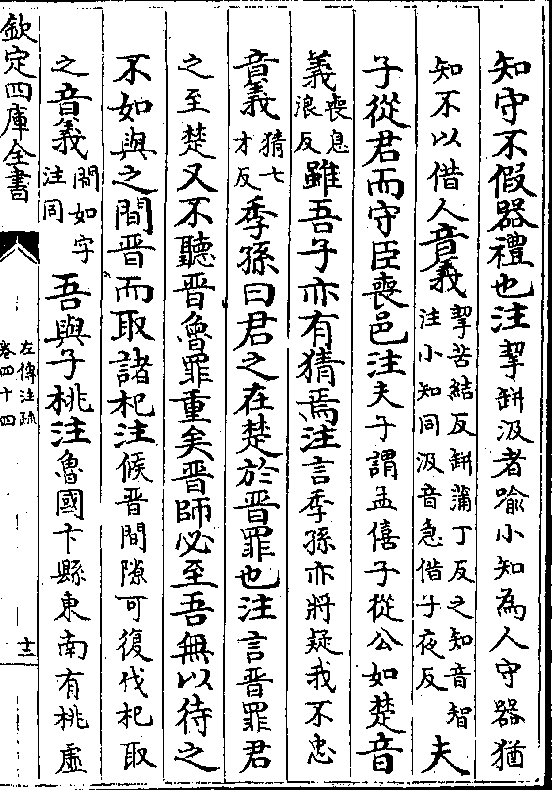 知守不假器禮也注挈缾汲者喻小知為人守器猶
知不以借人音義挈苦結反缾蒲丁反之知音智
注小知同汲音急借子夜反夫
子從君而守臣喪邑注夫子謂孟僖子從公如楚音
義喪息
浪反雖吾子亦有猜焉注言季孫亦將疑我不忠
音義猜七
才反季孫曰君之在楚於晉罪也注言晉罪君
之至楚又不聽晉魯罪重矣晉師必至吾無以待之
不如與之間晉而取諸杞注候晉間隙可復伐杞取
之音義間如字
注同吾與子桃注魯國卞縣東南有桃虛
欽定四庫全書
左傳注疏
卷四十四
十三